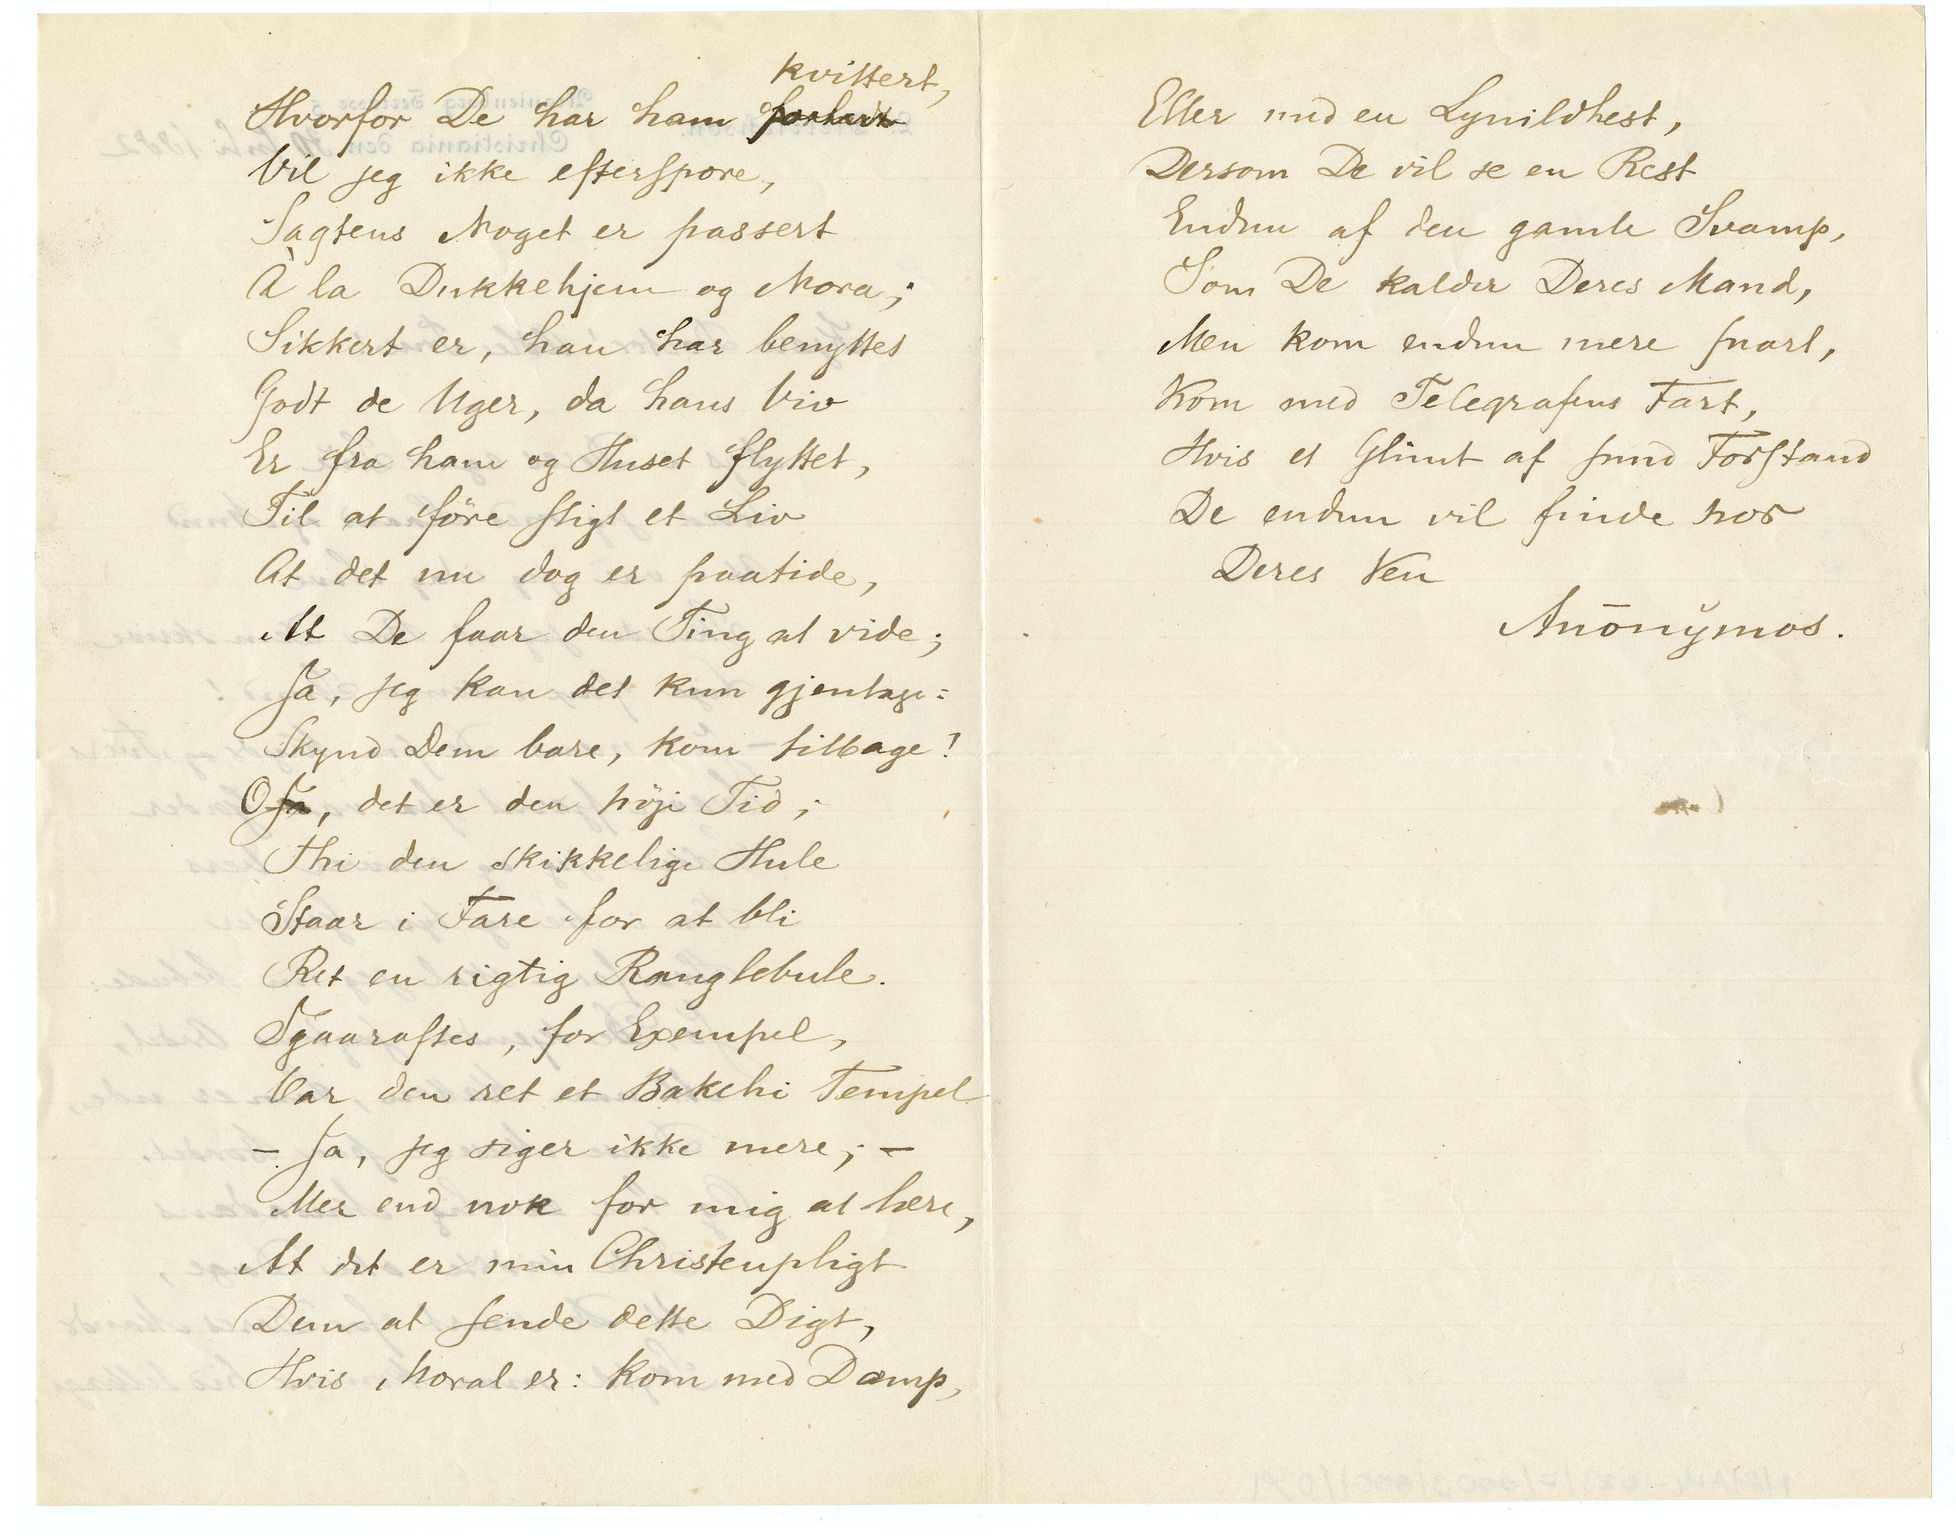 kvittert,
Hvorfor De har ham forladt
Vil jeg ikke efterspore,
Sagtens Noget er passert
À la Dukkehjem og Nora;
Sikkert er, han har benyttet
Godt de Uger, da hans Viv
Er fra ham og Huset flyttet,
Til at före sligt et Liv
At det nu dog er paatide,
At De faar den Ting at vide;
Ja, jeg kan det kun gjentage:
Skynd Dem bare, kom tilbage!
O Ja, det er den höje Tid;
Thi den skikkelige Hule
Staar i Fare for at bli
Ret en rigtig Ranglebule.
Igaaraftes, for Exempel,
Var den ret et Bakchi Tempel
– Ja, jeg siger ikke mere; –
Mer end nok for mig at lære,
At det er min Christenpligt
Dem at sende dette Digt,
Hvis Moral er: Kom med Damp,
Eller med en Lynildhest,
Dersom De vil se en Rest
Endnu af den gamle Svamp,
Som De kalder Deres Mand,
Men kom endnu mere snart,
Kom med Telegrafens Fart,
Hvis et Glimt af sund Forstand
De endnu vil finde hos
Deres Ven
Anōnȳmos.